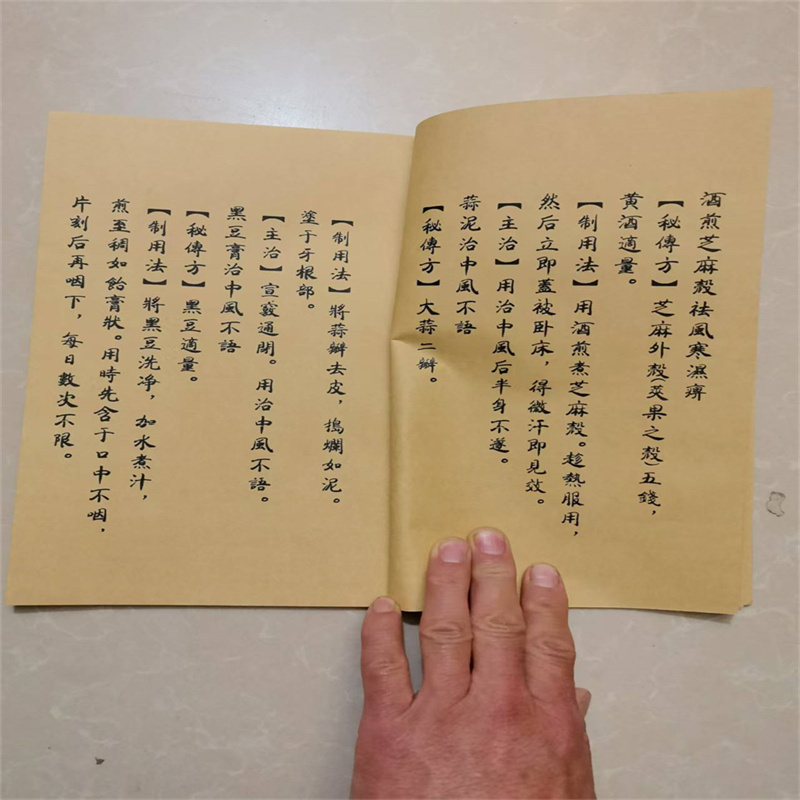 酒煎芝麻殼祛風寒濕痹
【秘傳方】芝麻外殼(莢果之殼)五錢，
黄酒適量。
【制用法】用酒煎煮芝麻殼。趁熱服用，
然后立即蓋被卧床，得微汗即見效。
【主治】用治中風后半身不遂。
蒜泥治中風不語
【秘傳方】大蒜二瓣。
【制用法】將蒜瓣去皮，搗爛如泥。
塗于牙根部。
【主治】宣竅通閉。用治中風不語。
黑豆膏治中風不語
【秘傳方】黑豆適量。
【制用法】將黑豆洗净，加水煮汁，
煎至稠如飴膏狀。用時先含于口中不咽，
片刻后再咽下，每日數次不限。